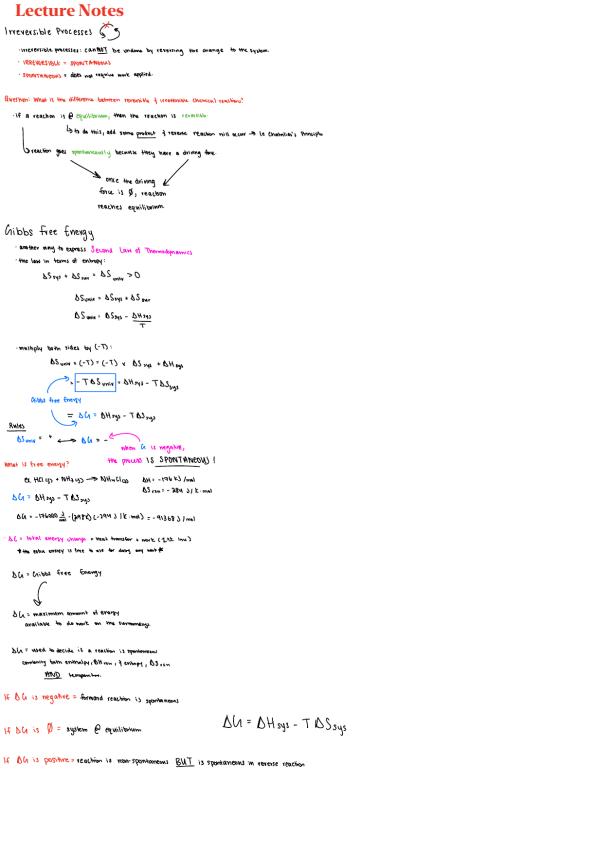 Lecture Notes
Irreversible Processes
· irreversible processes: canNOT be undone by reversing the change to the system.
· IRREVERSIBLE = SPONTANEOUS
· SPONTANEOUS = does not require work applied.
Question: What is the difference between reversible & irreversible chemical reactions?
· if a reaction is @ equilibrium, then the reaction is reversible
↳ to do this, add some product & reverse reaction will occur → Le Chatelier's Principle
↳ reaction goes spontaneously because they have a driving force.
once the driving
force is Ø, reaction
reaches equilibrium
Gibbs Free Energy
· another way to express Second Law of Thermodynamics
· the law in terms of entropy:
ΔSsys + ΔSsurr = ΔSuniv > 0
ΔSuniv = ΔSsys + ΔSsurr
ΔSuniv = ΔSsys - ΔHsys/T
· multiply both sides by (-T):
ΔSuniv × (-T) = (-T) × ΔSsys + ΔHsys
- TΔSuniv = ΔHsys - TΔSsys
Gibbs free Energy
= ΔG = ΔHsys - TΔSsys
Rules
ΔSuniv = + ↔ ΔG = -
when G is negative,
the process IS SPONTANEOUS!
What is free energy?
ex HCl(g) + NH3(g) → NH4Cl(s) ΔH = -176 kJ/mol
ΔSrxn = -284 J/K·mol
ΔG = ΔHsys - TΔSsys
ΔG = -176000 J/mol - (298K)(-284 J/K·mol) = -91368 J/mol
· ΔG = total energy change = heat transfer + work (1st law)
*the extra energy is free to use for doing any work*
ΔG = Gibbs free Energy
ΔG = maximum amount of energy
available to do work on the surroundings.
ΔG = used to decide is a reaction is spontaneous
combining both enthalpy, ΔHrxn, & entropy, ΔSrxn
AND temperature.
If ΔG is negative = forward reaction is spontaneous
If ΔG is Ø = system @ equilibrium
ΔG = ΔHsys - TΔSsys
If ΔG is positive = reaction is non-spontaneous BUT is spontaneous in reverse reaction